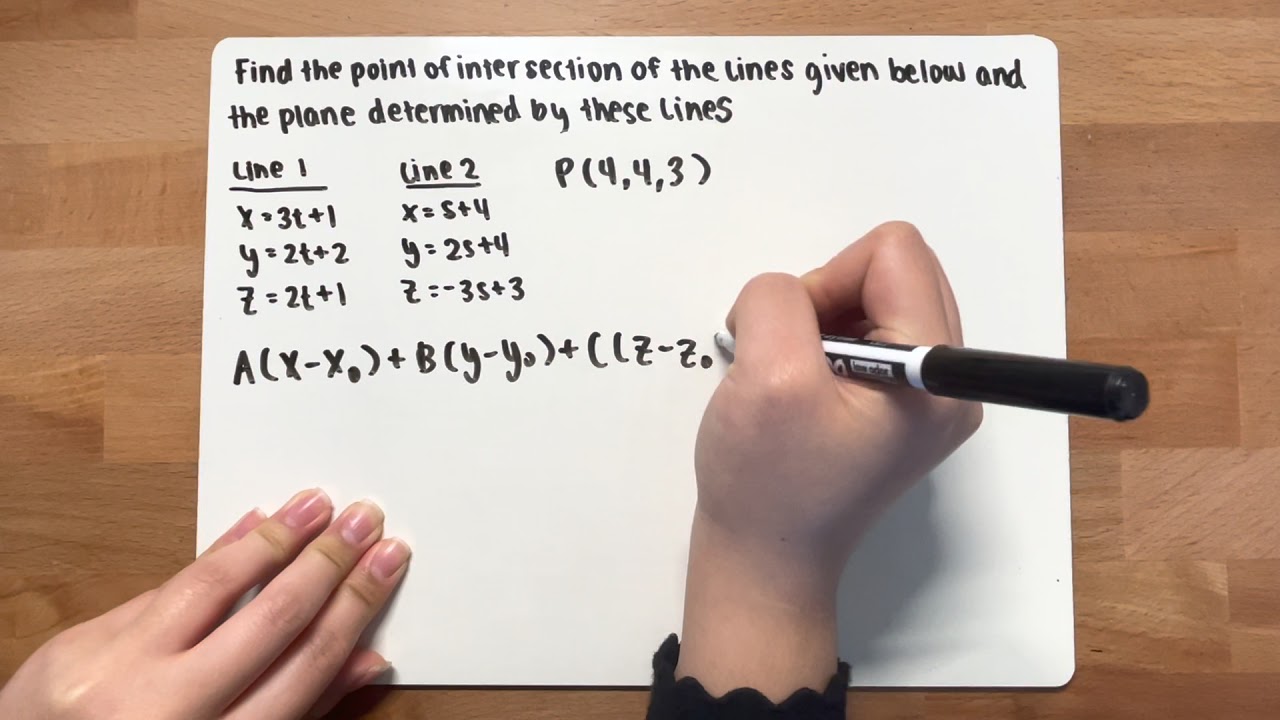 Find the point of intersection of the lines given below and
the plane determined by these lines
Line 1 Line 2 P(4,4,3)
x=3t+1 x=s+4
y=2t+2 y=2s+4
z=2t+1 z=-3s+3
A(x-x₀)+B(y-y₀)+C(z-z₀
low odor